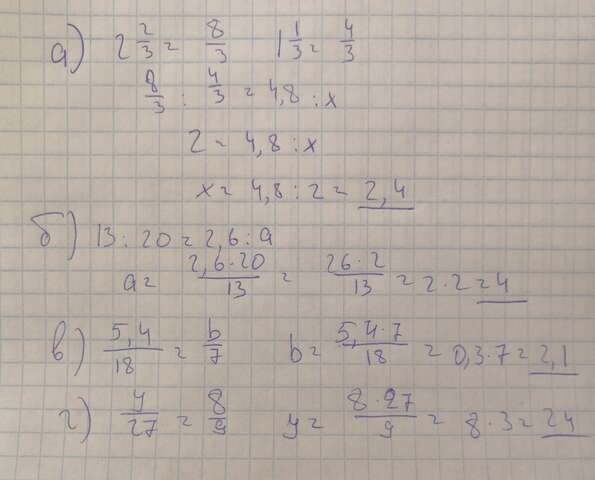 а) 2 2/3 = 8/3 1 1/3 = 4/3
8/3 : 4/3 = 4,8 : x
2 = 4,8 : x
x = 4,8 : 2 = 2,4
б) 13 : 20 = 2,6 : a
a = 2,6·20/13 = 26·2/13 = 2·2 = 4
в) 5,4/18 = b/7 b = 5,4·7/18 = 0,3·7 = 2,1
г) y/27 = 8/9 y = 8·27/9 = 8·3 = 24